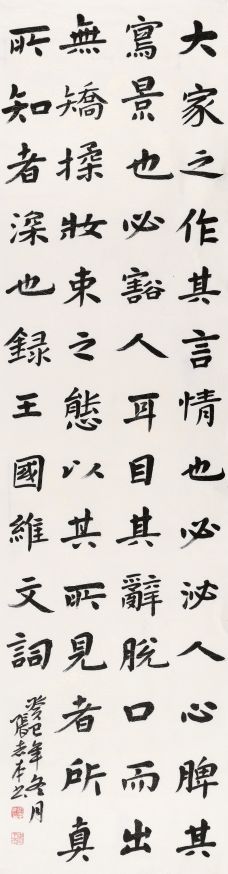 大家之作其言情也必泌人心脾其
寫景也必豁人耳目其辭脫口而出
無矯揉妝束之態以其所見者所真
所知者深也録王國維文詞
癸巳年冬月